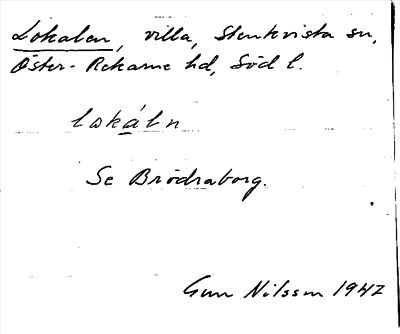 Lokalen, villa, Stenkvista sn,
Öster-Rekarne hd, Söd l.
lokáln
Se Brödraborg.
Gun Nilsson 1947